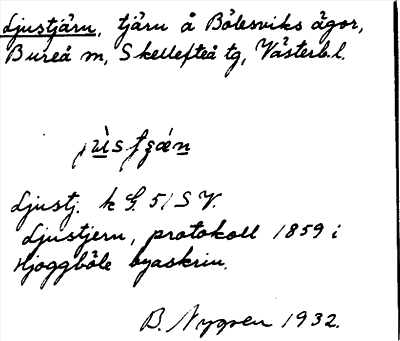 Ljustjärn, tjärn å Bölesviks ägor,
Bureå sn, Skellefteå tg, Västerb.l.
Ljustj. k G. 51 S V.
Ljustjern, protokoll 1859 i
Hjoggböle byaskrin.
B. Nygren 1932.